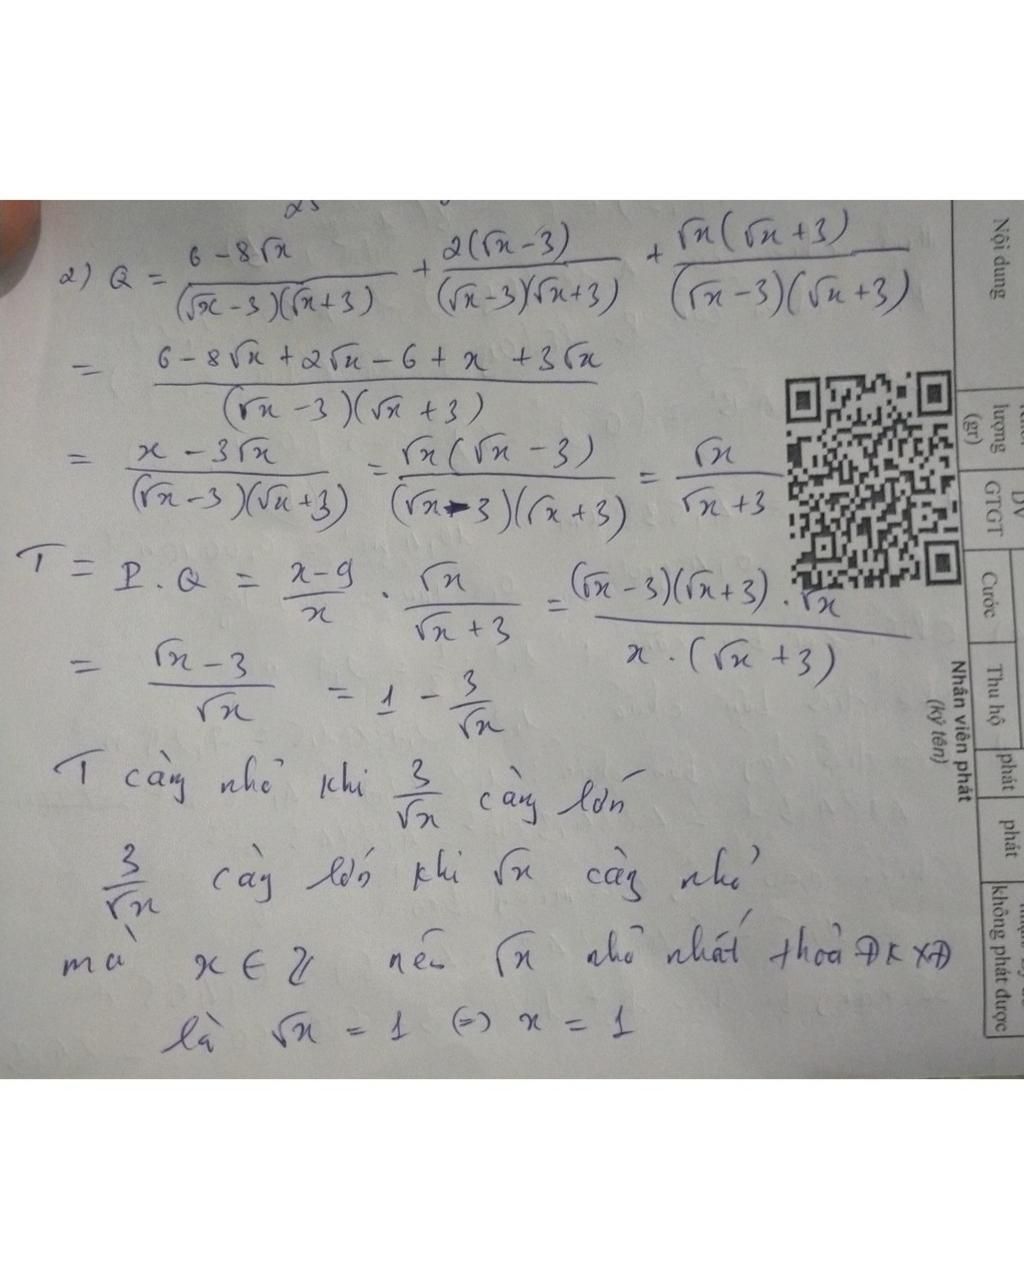 2) Q = (6 - 8√x)/((√x - 3)(√x + 3)) + 2(√x - 3)/((√x - 3)(√x + 3)) + √x(√x + 3)/((√x - 3)(√x + 3))
= (6 - 8√x + 2√x - 6 + x + 3√x)/((√x - 3)(√x + 3))
= (x - 3√x)/((√x - 3)(√x + 3)) = √x(√x - 3)/((√x - 3)(√x + 3)) = √x/(√x + 3)
T = P.Q = (x - 9)/x . √x/(√x + 3) = ((√x - 3)(√x + 3) . √x)/(x . (√x + 3))
= (√x - 3)/√x = 1 - 3/√x
T càng nhỏ khi 3/√x càng lớn
3/√x càng lớn khi √x càng nhỏ
mà x ∈ Z nên √x nhỏ nhất thoả ĐKXĐ
là √x = 1 (=) x = 1
Nội dung
lượng
(gr)
DV
GTGT
Cước
Thu hộ
phát
phát
không phát được
Nhân viên phát
(ký tên)